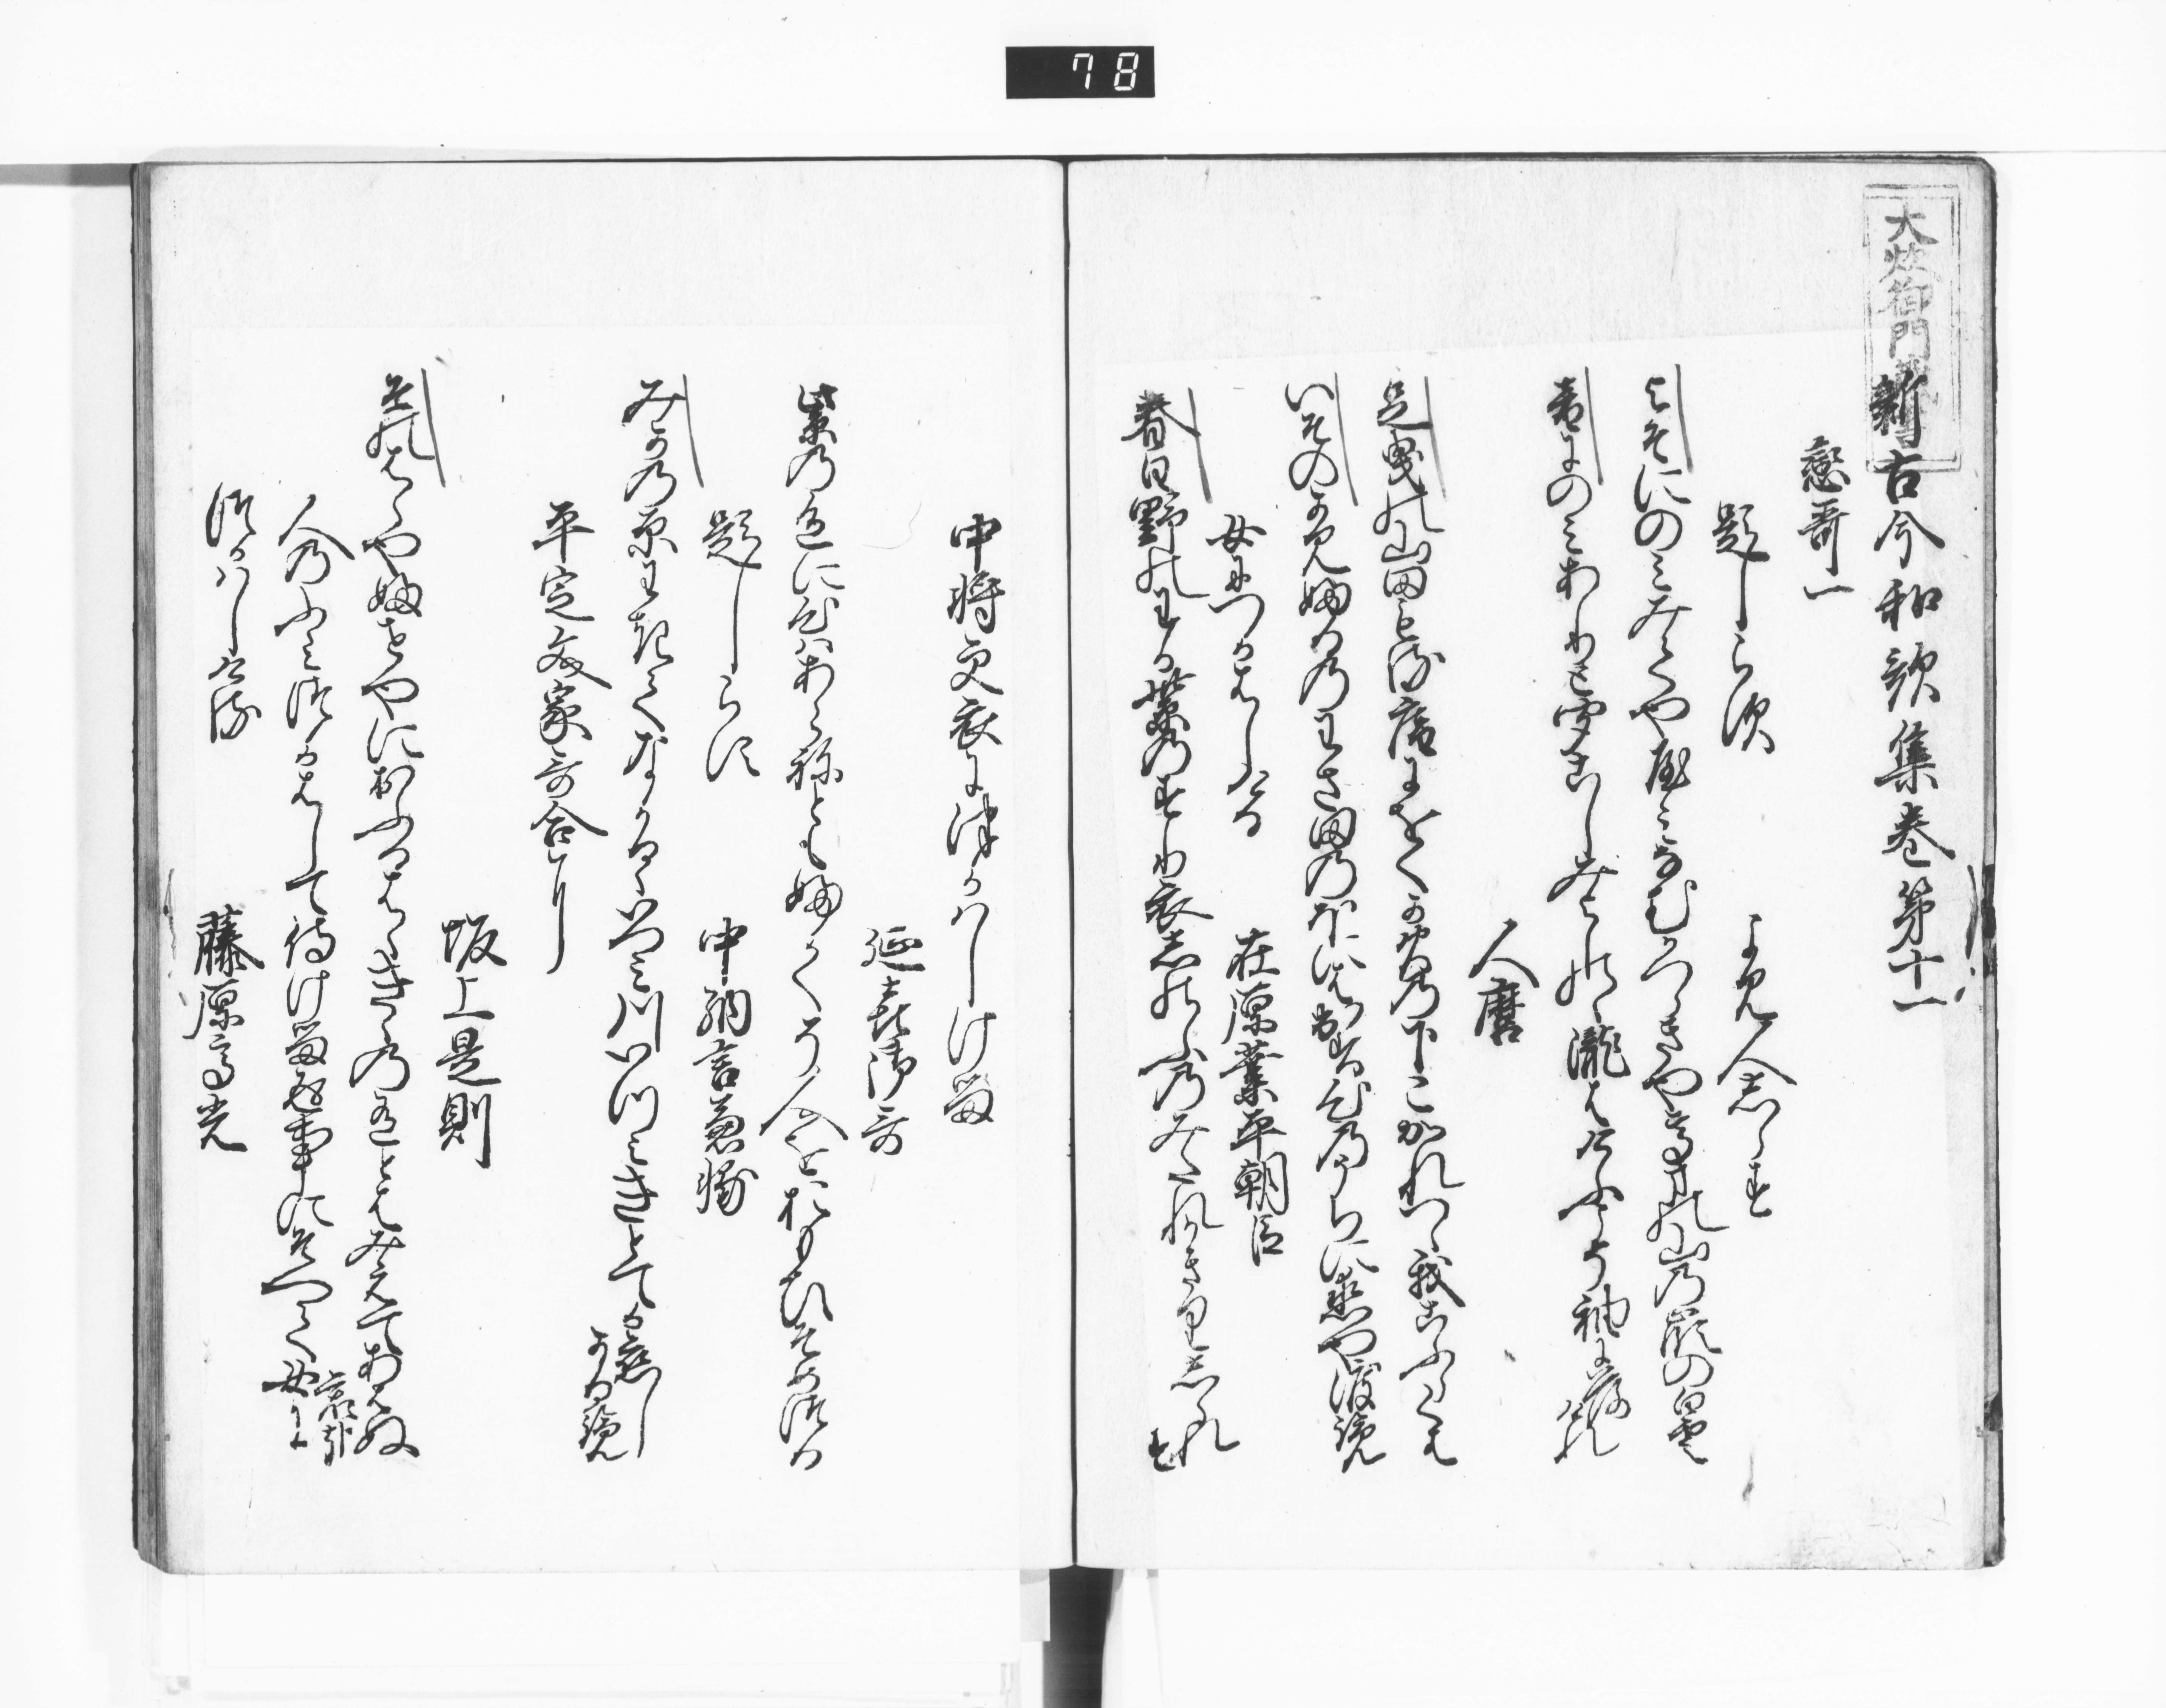 78
大炊御門
新古今和歌集巻第十一
恋哥一
題しらす
よみ人しらす
よそにのみみてややみなむかつらきや高まの山乃嶺の白雲
音にのみありときゝこしみよしのゝ瀧はけふこそ袖に落けれ
人麿
足曳の山田もる庵にをくかひの下こかれつゝ我こふらくは
いその神ふるのわさ田のほにはいてす心のうちに恋や渡覧
女につかはしける
在原業平朝臣
春日野のわか紫のすり衣しのふのみたれかきりしられす
中将更衣につかはしける
延喜御哥
紫の色に心はあらねともふかくそ人を思ひそめつる
題しらす
中納言兼輔
みかの原わきてなかるゝいつみ川いつみきとてか恋しかる覧
平定文家哥合に
坂上是則
そのはらやふせやにおふるはゝきゝのありとはみえてあはぬ哉
人のふみつかはして侍ける返事にそへて女に
つかはしける
藤原高光